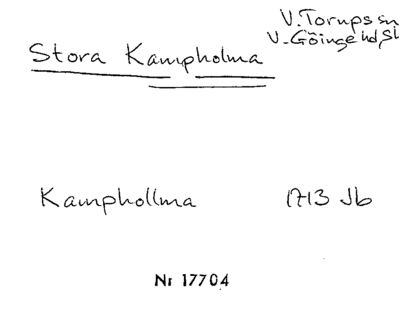 V. Torups sn
V. Göinge hd, Sk
Stora Kampholma
Kamphollma 1713 Jb
Nr 17704